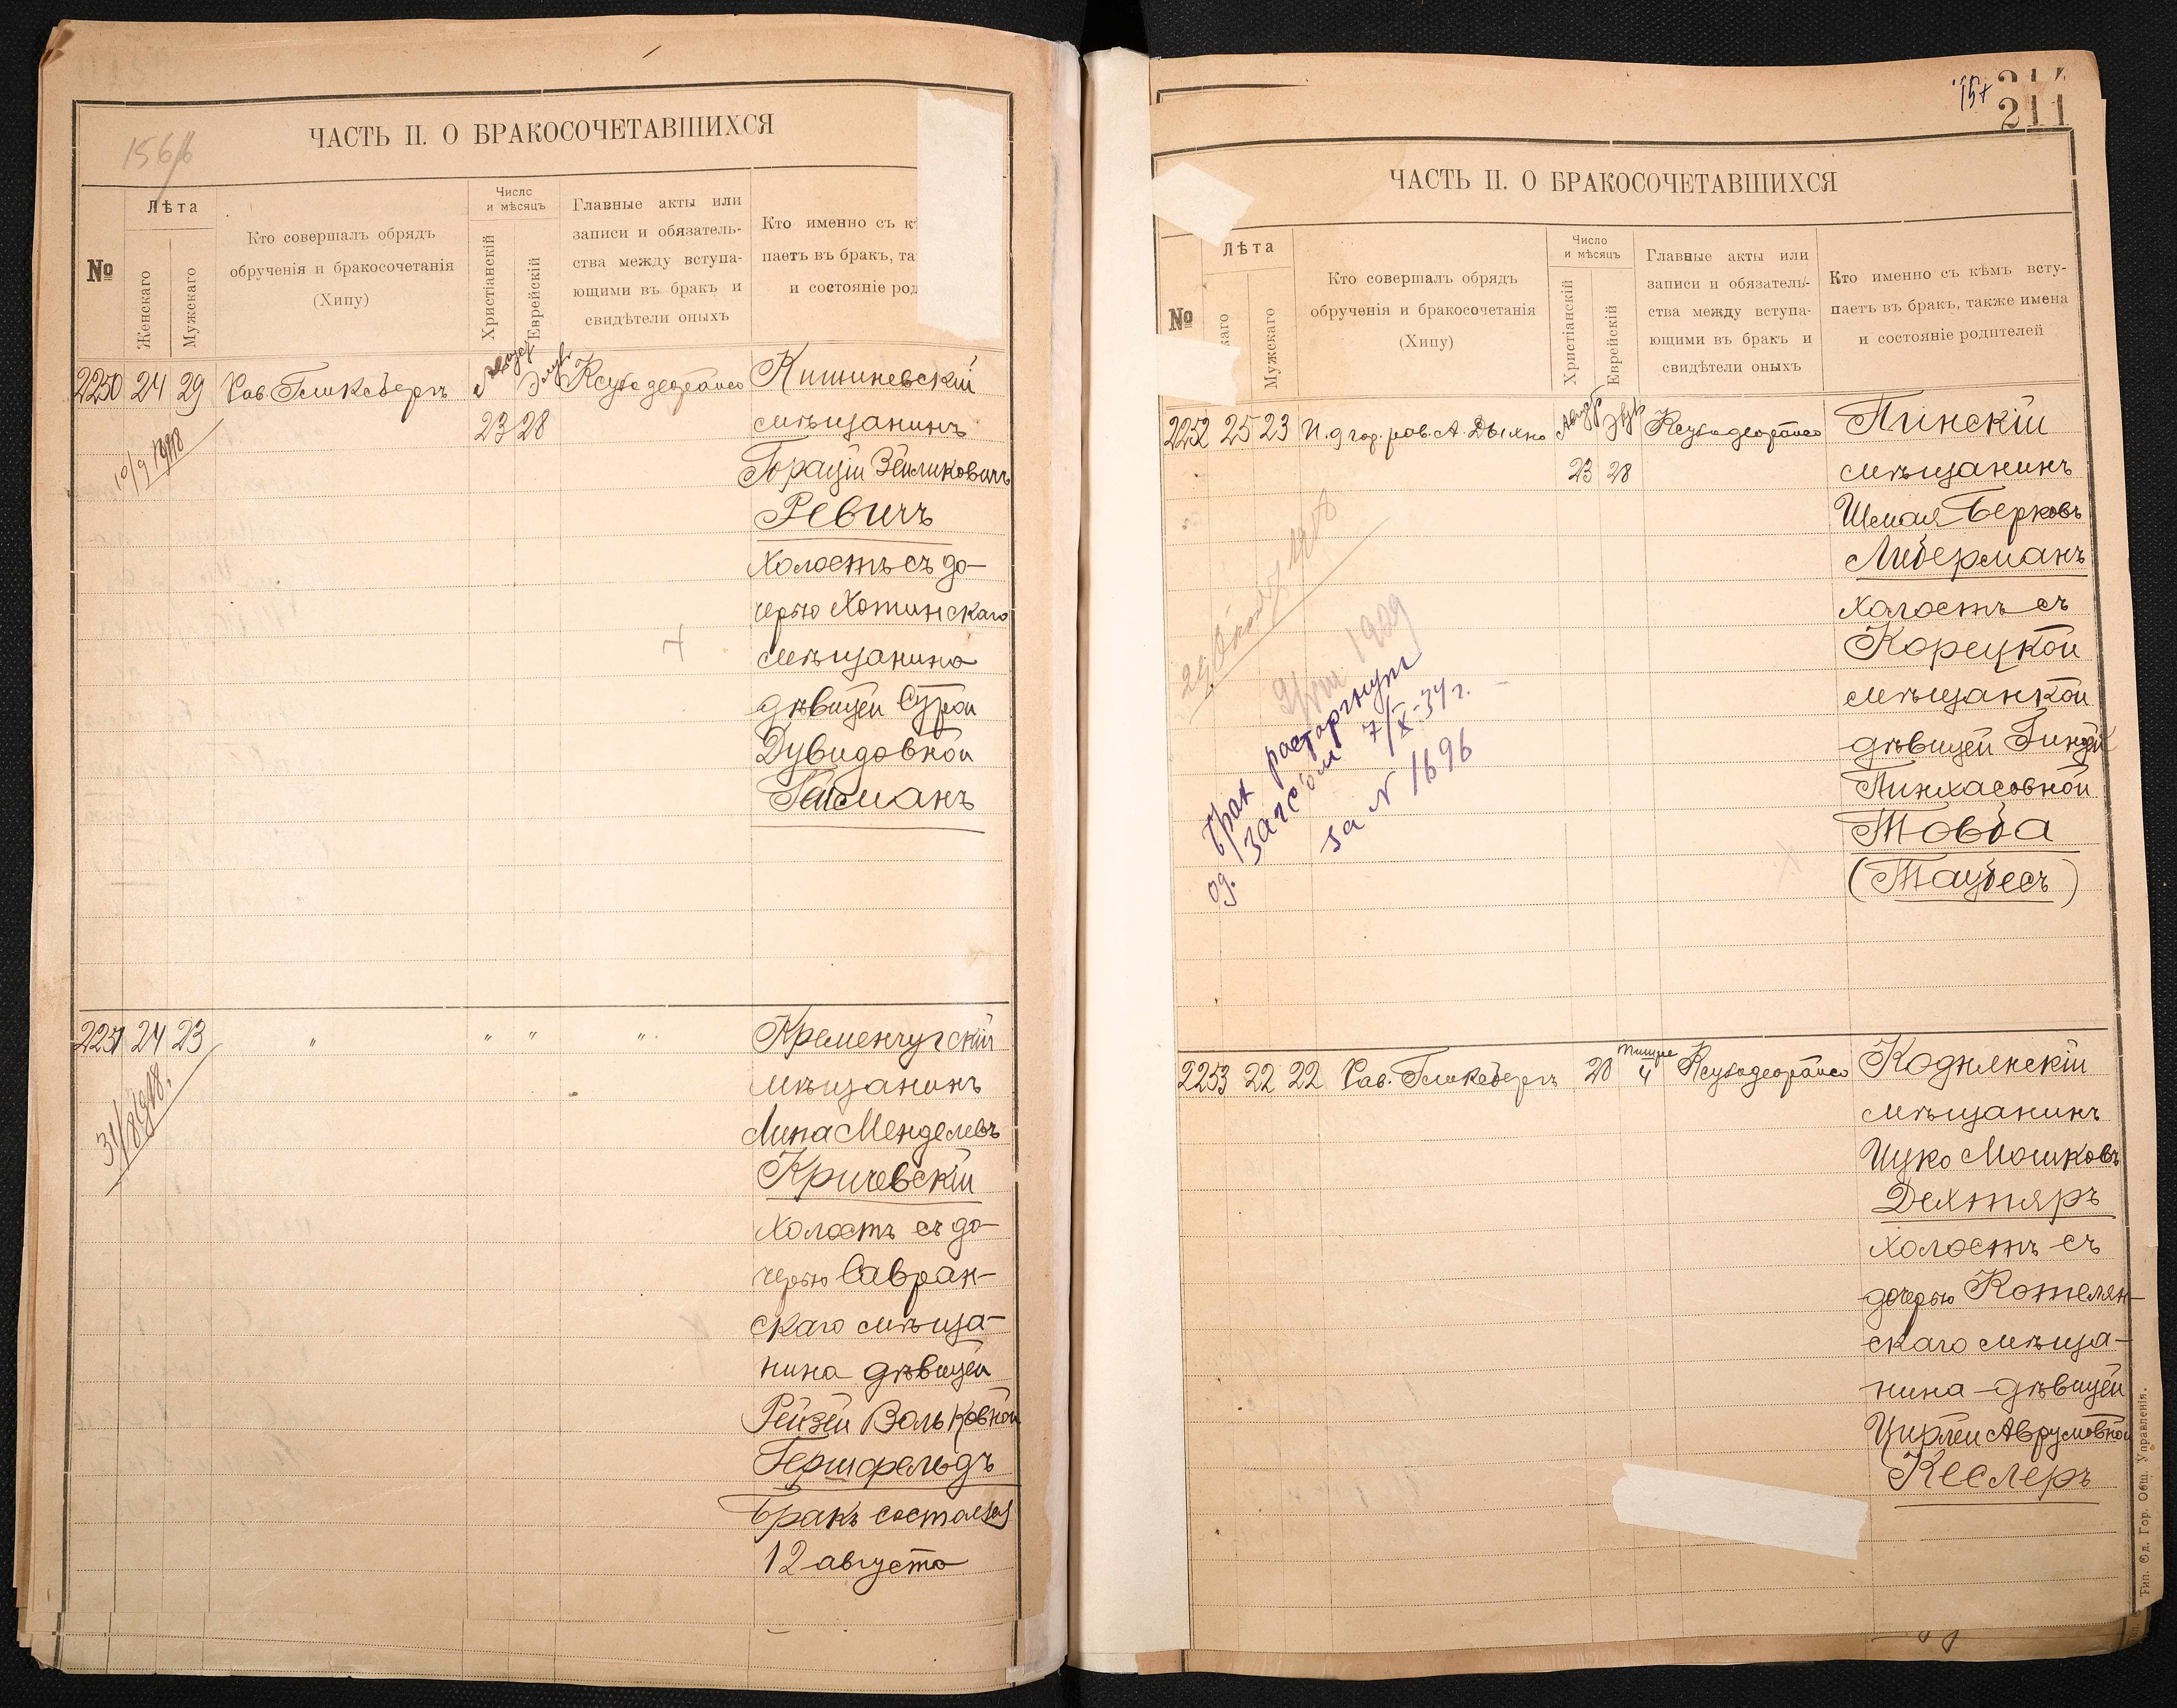 156/б
ЧАСТЬ II. О БРАКОСОЧЕТАВШИХСЯ
№
Лѣта
Женскаго
Мужскаго
Кто совершалъ обрядъ
обрученія и бракосочетанія
(Хипу)
Число
и мѣсяцъ
Христіанскій
Еврейскій
Главные акты или
записи и обязатель-
ства между вступа-
ющими въ бракъ и
свидѣтели оныхъ
Кто именно съ к
паетъ въ бракъ, та
и состояніе род
2250 24 29 Рав. Гликсбергъ Август Элул Ксубадеорайсо Кишиневскій
23 28 мѣщанинъ
10/9 1918
Горацій Зейликовичъ
Ревичъ
холостъ съ до-
черью Хотинскаго
мѣщанина
дѣвицей Сурой
Дувидовной
Гайсманъ
2251 24 23 " " " " Кременчугскій
мѣщанинъ
31/8 1918.
Липа Менделевъ
Кричевскій
холостъ съ до-
черью Савран-
скаго мѣща-
нина дѣвицей
Рейзей Вольковной
Гершфельдъ
Бракъ состоялся
12 августа
157
211
211
ЧАСТЬ II. О БРАКОСОЧЕТАВШИХСЯ
№
Лѣта
каго
Мужскаго
Кто совершалъ обрядъ
обрученія и бракосочетанія
(Хипу)
Число
и мѣсяцъ
Христіанскій
Еврейскій
Главные акты или
записи и обязатель-
ства между вступа-
ющими въ бракъ и
свидѣтели оныхъ
Кто именно съ кѣмъ всту-
паетъ въ бракъ, также имена
и состояніе родителей
2252 25 23 И. д. гор. рав. А. Дыхно Август Элул Ксубадеорайсо Пинскій
23 28 мѣщанинъ
Шмая Берковъ
Либерманъ
холостъ съ
Корецкой
мѣщанкой
дѣвицей Гиндой
Пинхасовной
Товба
(Таубесъ)
1929
брак расторгнут
од. ЗАГС'ом 7/X-34 г.
за N 1696
2253 22 22 Рав. Гликсбергъ 28 Тишре 4 Ксубадеорайсо Кодымскій
мѣщанинъ
Ицко Мошковъ
Дехтяръ
холостъ съ
дочерью Котелян-
скаго мѣща-
нина - дѣвицей
Цирлей Аврумовной
Кеслеръ
Тип. Од. Гор. Общ. Управленія.